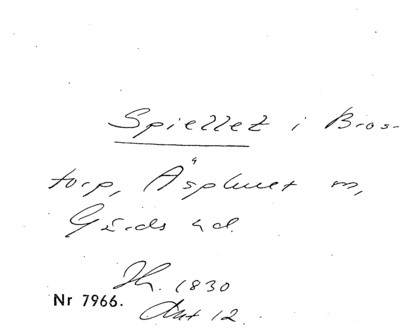 Spiellet i Bros-
torp, Äsphult sn,
Gärds hd.
Th. 1830
Nr 7966. Ant 12